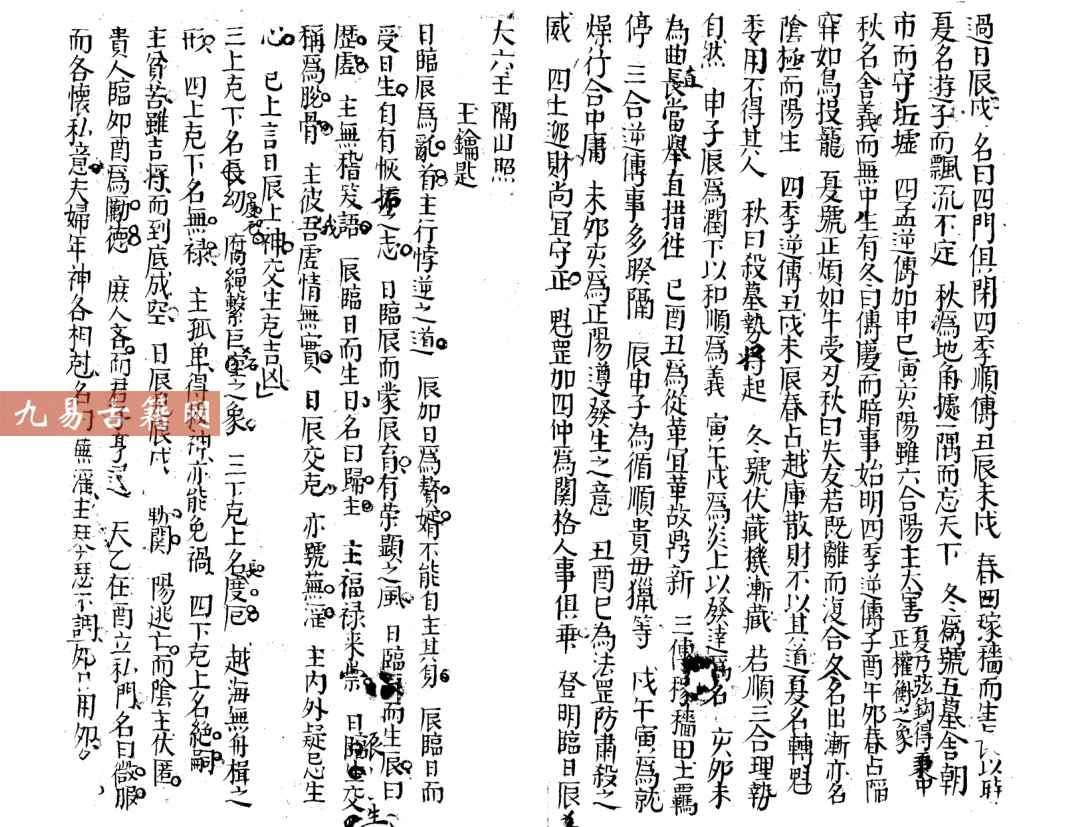 過日辰戌名曰四門俱閉四季順傳丑辰未戌春曰稼穡而生
夏名遊子而飄流不定秋為地角據一隅而忘天下冬為號五墓舍朝
市而守坵墟四孟逆傳加申巳寅亥陽雖六合陽主大害
夏乃弦鈎得秉中
正權衡之象
秋名舍義而無中生有冬曰傳慶而暗事始明四季逆傳子酉午卯春占陷
穽如鳥投籠夏號正煩如牛受刃秋曰失友若既離而復合冬名出漸亦名
陰極而陽生四季逆傳丑戌未辰春占越庫散財不以其道夏名轉魁
委用不得其人秋曰殺墓勢將起冬號伏藏機漸藏若順三合理勢
自然申子辰為潤下以和順為義寅午戌為炎上以發達為名亥卯未
為曲直長當舉直措徃巳酉丑為從革宜革故鼎新三傳稼穡田土羈
停三合逆傳事多睽隔辰申子為循順貴毋獵等戌午寅為就
燥行合中庸未卯亥為正陽遵發生之意丑酉巳為法罡防肅殺之
威四土迎財尚宜守正魁罡加四仲為關格人事俱乖登明臨日辰
大六壬隔山照
玉鑰匙
日臨辰為亂首主行悖逆之道辰加日為贅婿不能自主其身辰臨日而
受日生自有恢振之志日臨辰而蒙辰育有荣顯之風日臨辰而生辰曰
歷虛主無稽笑語辰臨日而生日名曰歸主主福禄来崇日臨
稱為脫骨主彼吾虛情無實日辰交克亦號蕪淫主内外疑忌生
心巳上言日辰上神交生克吉凶
三上克下名長幼腐繩繫巨室之象三下克上名度厄越海無舟楫之
形四上克下名無禄主孤单得亦能免禍四下克上名絶嗣
主貧苦雖吉將而到底成空日辰辰戌關陽逃亡而陰主伏匿
貴人臨卯酉為勵德庶人吝而君子亨天乙在酉立私門名曰微服
而各懷私意夫婦年神各相尅名曰蕪淫主琴瑟不調
九易古籍网